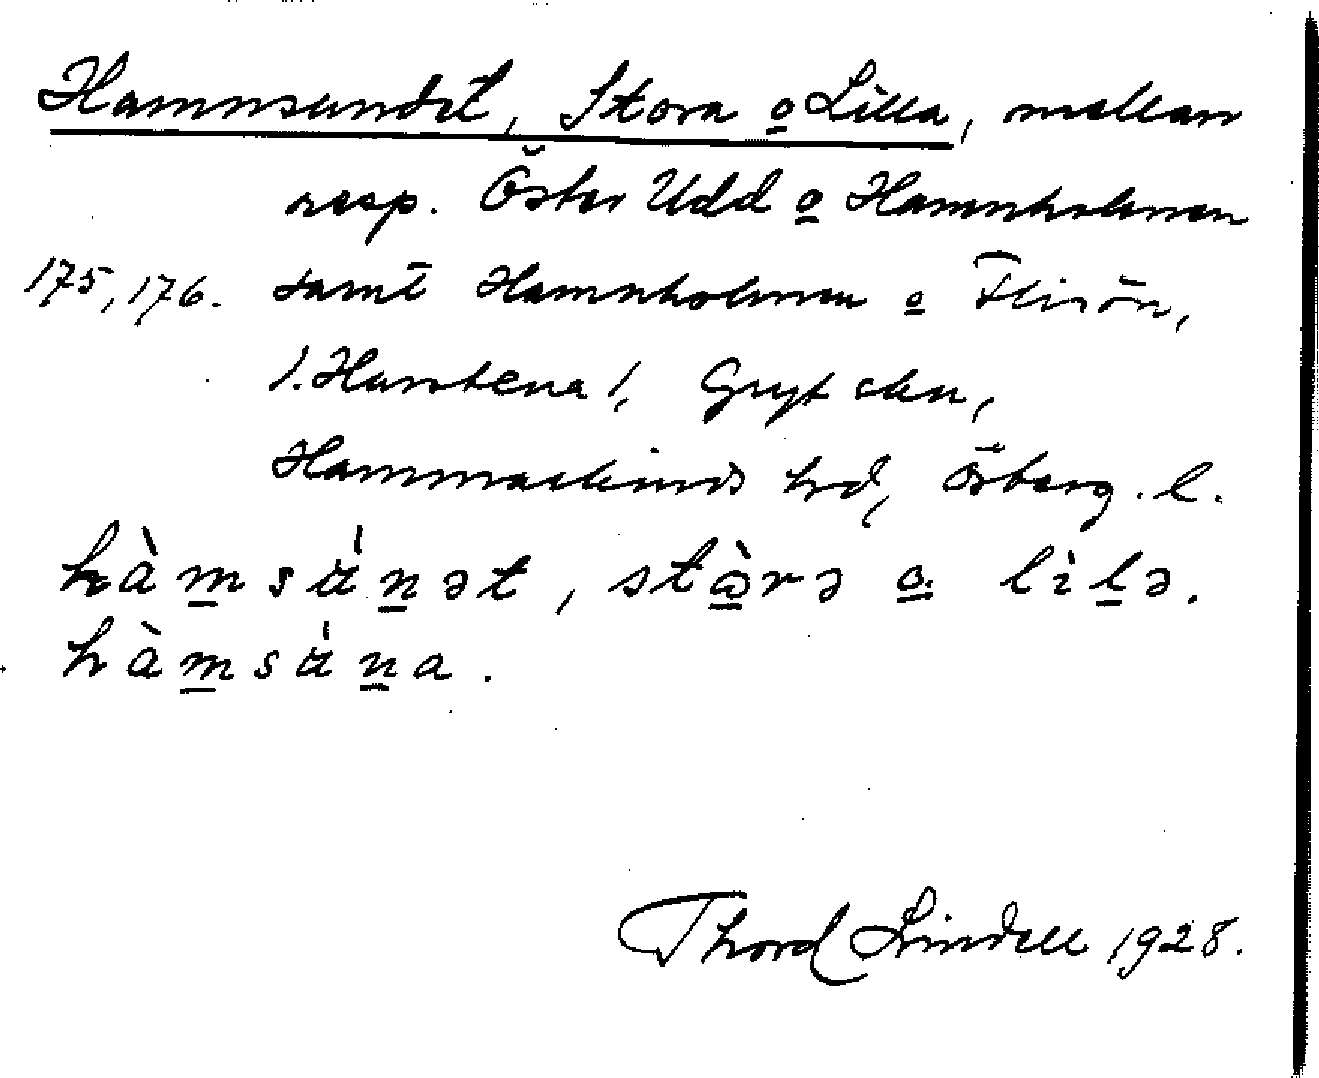 Hamnsundet, Stora o Lilla, mellan
resp. Öster Udd o Hamnholmen
175, 176. samt Hamnholmen o Flisön,
l. Harstena l, Gryt skn,
Hammarkinds hrd, Österg. l.
hàmsu̇nət, stòrə o lìlə.
hàmsu̇na.
Thord Lindell 1928.